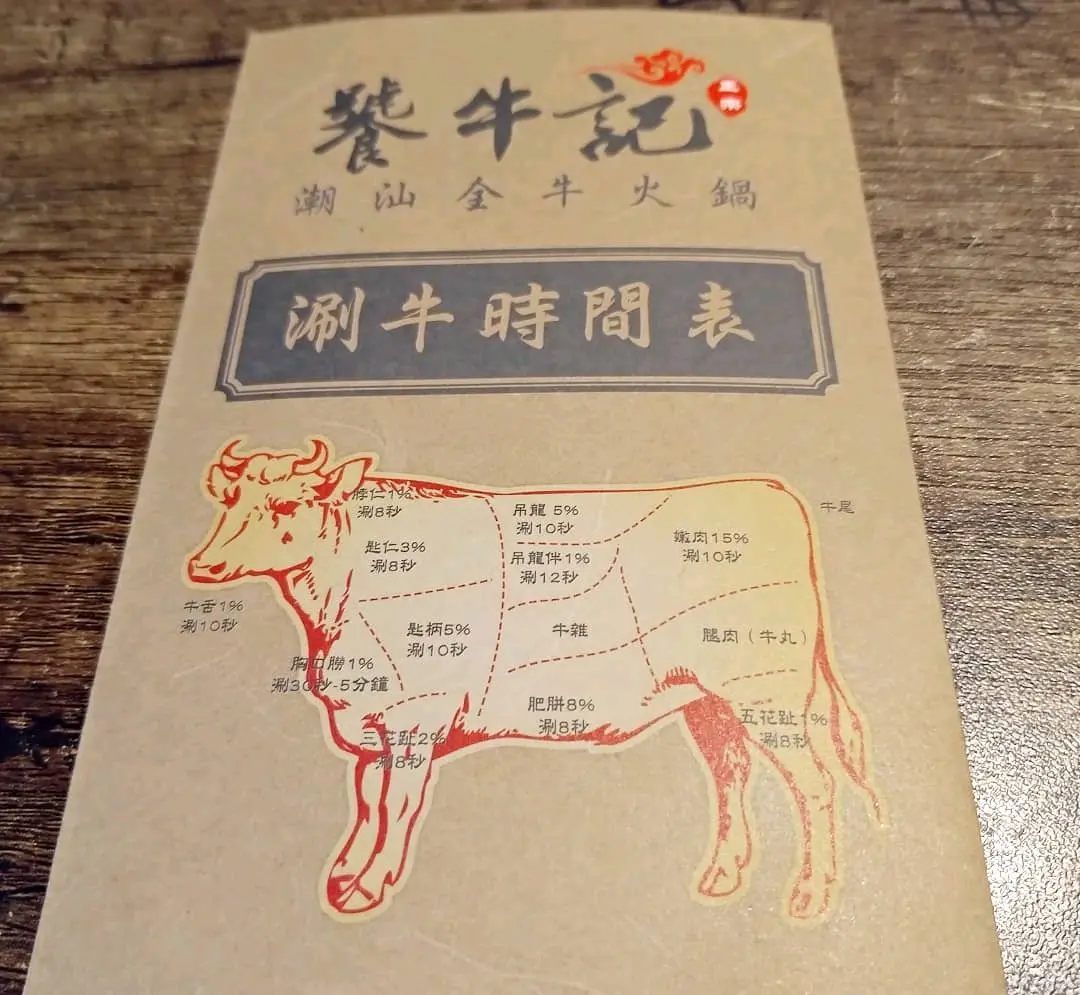 饕牛記
潮汕全牛火鍋
涮牛時間表
脖仁1%
涮8秒
匙仁3%
涮8秒
吊龍 5%
涮10秒
吊龍伴1%
涮12秒
嫩肉15%
涮10秒
牛尾
牛舌1%
涮10秒
匙柄5%
涮10秒
牛雜
腿肉（牛丸）
胸口朥1%
涮30秒-5分鐘
肥胼8%
涮8秒
三花趾2%
涮8秒
五花趾1%
涮8秒